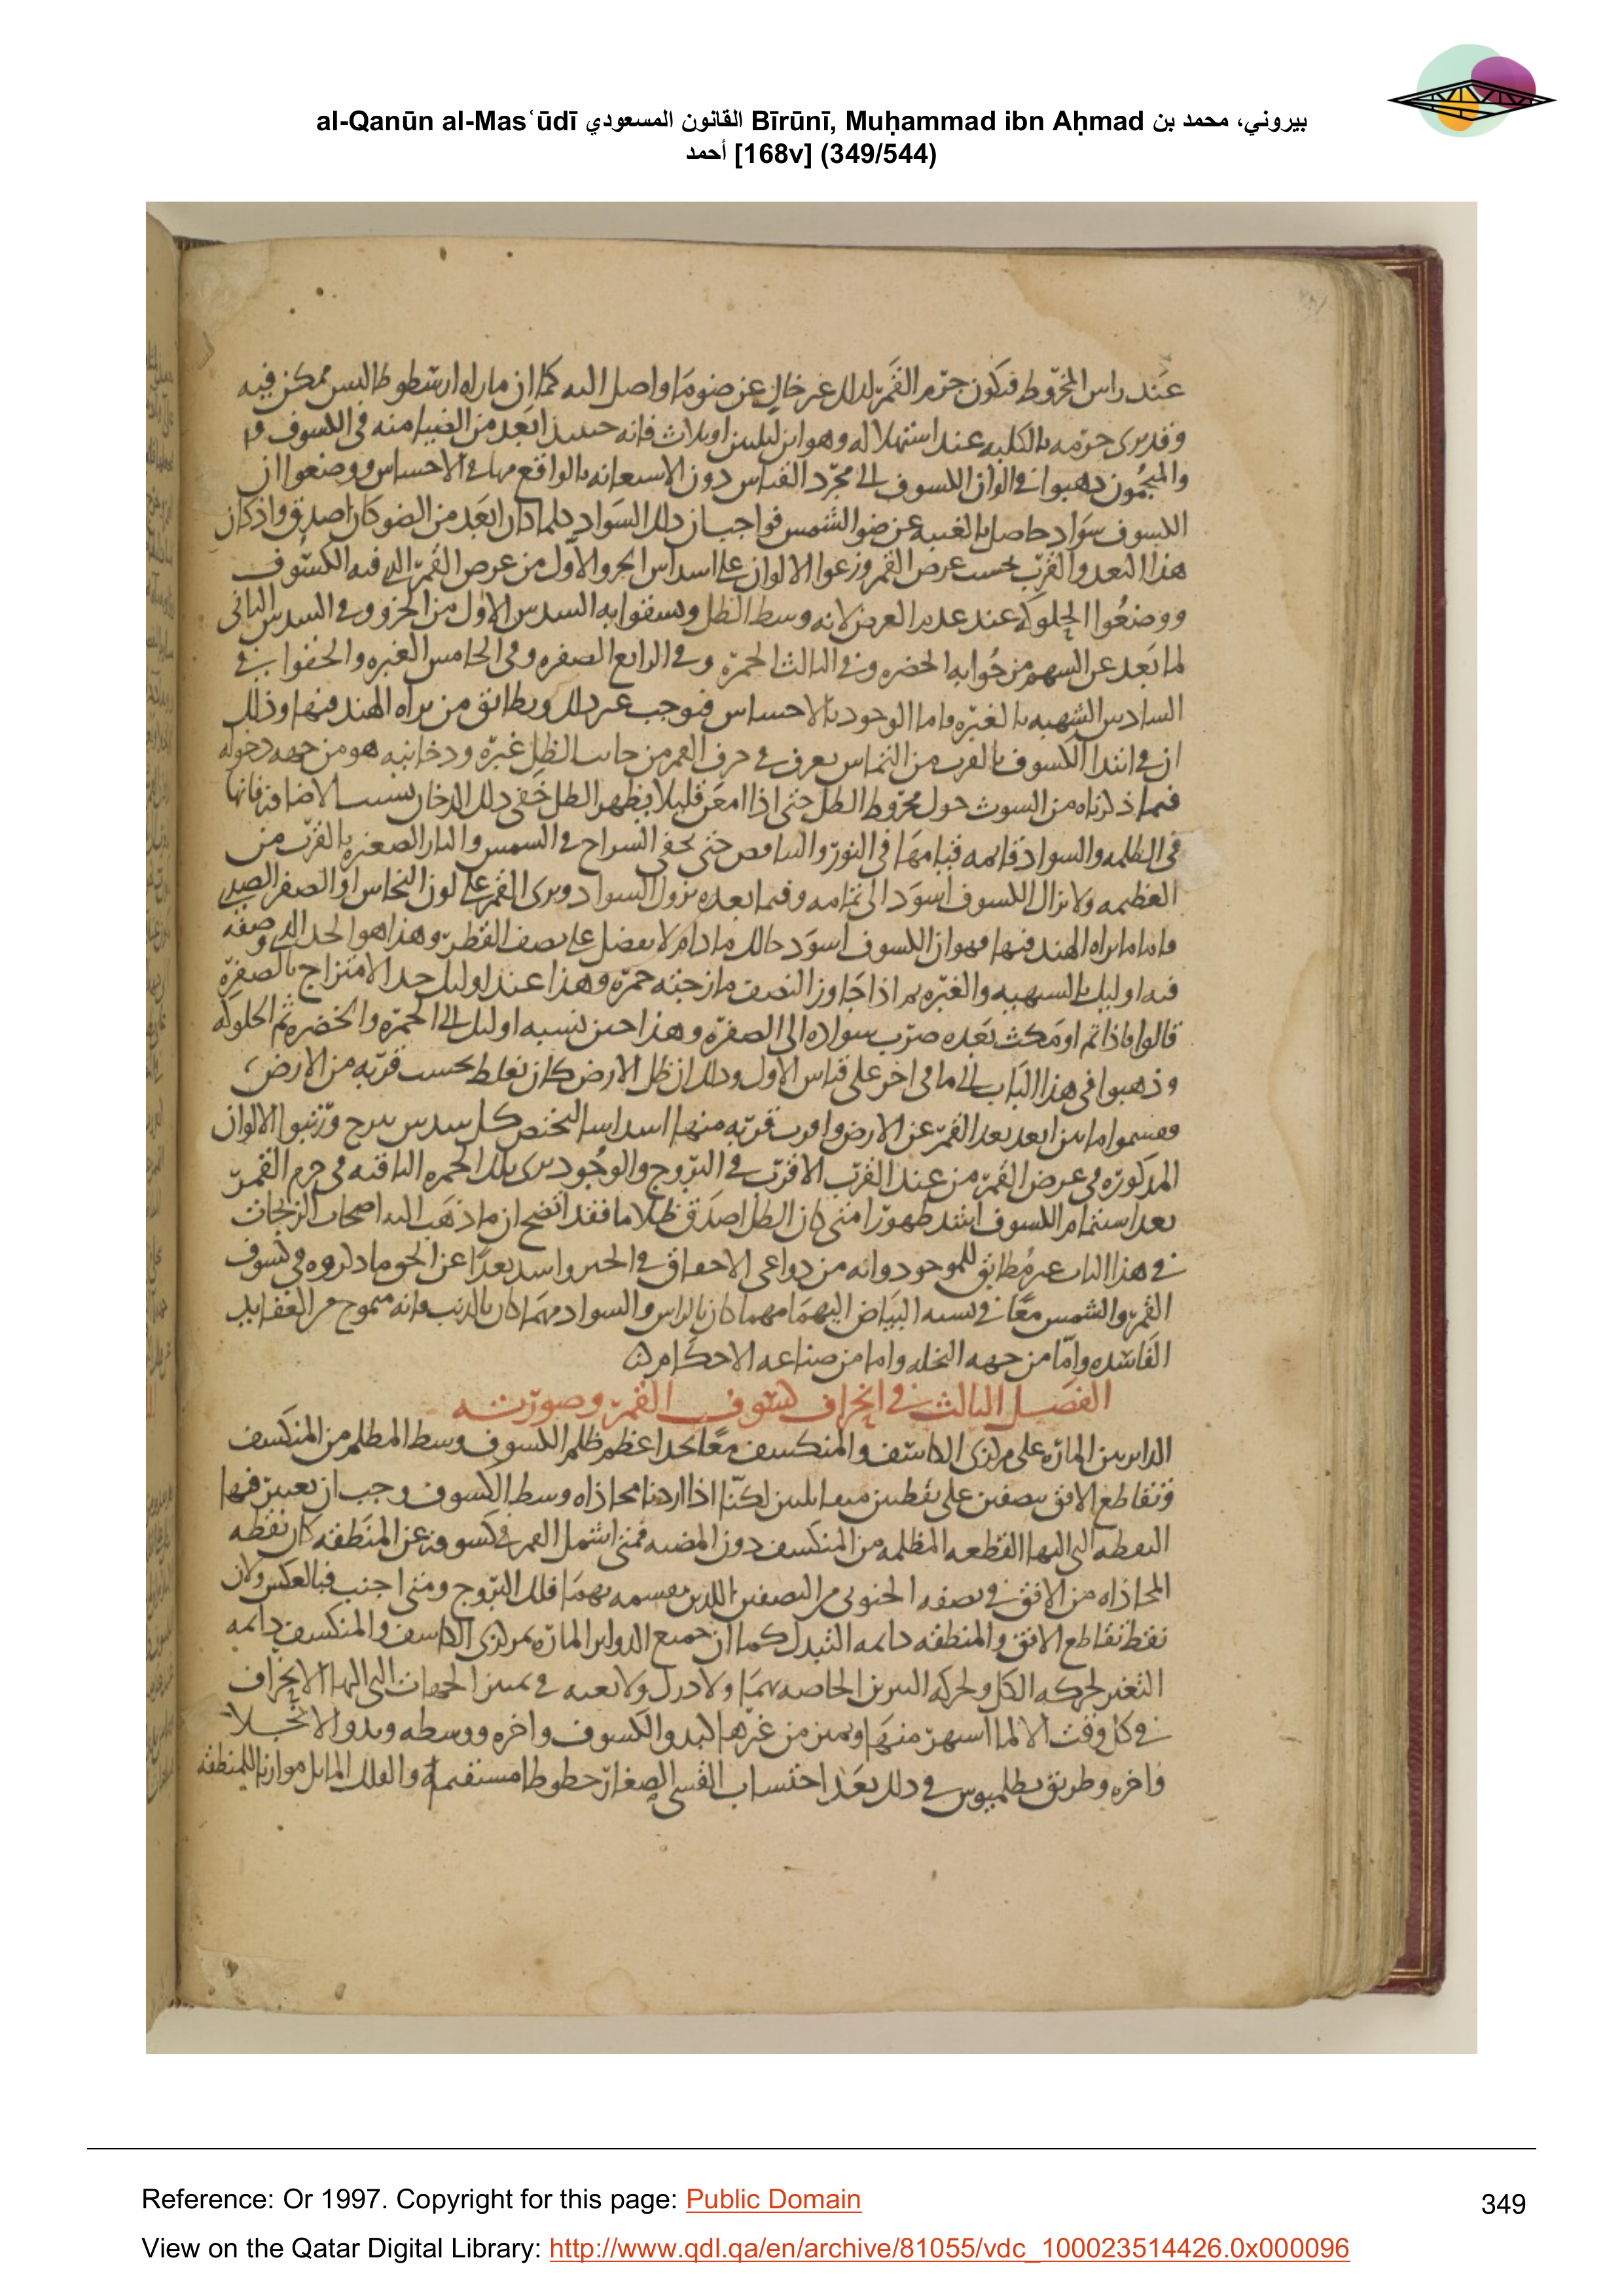 al-Qanūn al-Masʿūdī القانون المسعودي Bīrūnī, Muḥammad ibn Aḥmad بيروني، محمد بن
أحمد [168v] (349/544)
عند راس المخروط فيكون جرم القمر لذلك غير خال عن ضو ما واصل اليه كما ان ما راه ارسطوطاليس ممكن فيه
وقد يرى جرمه بالكلية عند استهلاله وهو ابن ليلتين او ثلاث فانه حينئذ ابعد من الضيا منه في الكسوف
والمنجمون ذهبوا في الوان الكسوف الى مجرد القياس دون الاستعانة بالواقع منها في الاحساس ووضعوا ان
الكسوف سواد حاصل بالغيبة عن ضو الشمس فواجب ان ذلك السواد كلما كان ابعد من الضو كان اصدق واذ كان
هذا البعد والقرب بحسب عرض القمر وزعوا الالوان على اسداس الجزو الاول من عرض القمر الذي فيه الكسوف
ووضعوا الحلوكة عند عدم العرض لانه وسط الظل وسقفوا به السدس الاول من الجزو وفي السدس الثاني
لما بعد عن السهم من جوابه الخضرة وفي الثالث الحمرة وفي الرابع الصفرة وفي الخامس الغبرة والحقوا بها في
السادس الشهبة بالغبرة واما الوجود بالاحساس فيوجب غير ذلك ويطابق من يراه الهند فيها وذلك
ان في ابتدا الكسوف بالقرب من التماس يعرف في حرف القمر من جانب الظل غبرة ودخانية هو من جهة دخوله
فيما ذكرناه من الشوب حول مخروط الظل حتى اذا امعن قليلا يظهر الظل خفي ذلك الدخان بسبب الاضافة فانها
في الظلمة والسواد قائمة قيامها في النور والبياض حتى يخفى السراج في الشمس والنار الصغيرة بالقرب من
العظيمة ولا يزال الكسوف اسود الى تمامه وفيما بعده يزول السواد ويرى القمر على لون النحاس او الصفر الصدي
واما ما يراه الهند فيها فهو ان الكسوف اسود حالك ما دام لا يفضل على نصف القطر وهذا هو الحد الذي وصفه
فيه اوليك بالشهبة والغبرة ثم اذا جاوز النصف مازجته حمرة وهذا عند اوليك حد الامتزاج بالصفرة
قالوا فاذا تم او مكث بعده ضرب سواده الى الصفرة وهذا حين نسبه اوليك الى الحمرة والخضرة ثم الحلوكة
وذهبوا في هذا الباب الى ما في اخر على قياس الاول وذلك ان ظل الارض كان يغلظ بحسب قربه من الارض
فقسموا ما بين ابعد بعد القمر عن الارض واقرب قربه منها اسداسا ليختص كل سدس بدرج ورتبوا الالوان
المذكورة في عرض القمر من عند القرب الاقرب في البروج والوجود يرى تلك الحمرة الباقية في جرم القمر
بعد استتمام الكسوف اشد ظهورا متى كان الظل اصدق ظلاما فقد اتضح ان ما ذهب اليه اصحاب الزيجات
في هذا الباب غير مطابق للموجود وانه من دواعي الاخفاق في الخبر واشد بعدا عن الحق ما ذكروه في كسوف
القمر والشمس معا في نسبة البياض اليهما مهما كان بالراس والسواد مهما كان بالذنب فانه متموج من العقايد
الفاسدة واما من جهة النحلة واما من صناعة الاحكام
الفصل الثالث في انحراف كسوف القمر وصورته
الدايرتين المارة على مركزي الكاسف والمنكسف معا تحد اعظم ظلم الكسوف وسط المظلم من المنكسف
وتقاطع الافق بنصفين على نقطتين متقابلتين لكنا اذا اردنا محاذاة وسط الكسوف وجب ان نعين فيها
النقطة التي اليها القطعة المظلمة من المنكسف دون المضية فمتى اشمل القمر في كسوفه عن المنطقة كان نقطة
المحاذاة من الافق في نصفه الجنوبي من النصفين اللذين يقسمه بهما فلك البروج ومتى اجنب فبالعكس ولان
نقط تقاطع الافق والمنطقة دايمة التبدل كما ان جميع الدواير المارة بمركزي الكاسف والمنكسف دايمة
التغير لحركة الكل ولحركة النيرين الخاصة بهما ولا درك ولا بغية في تمييز الجهات التي اليها الانحراف
في كل وقت الا لما اشتهر منها وتميز من غيرها كبدو الكسوف واخره ووسطه وبدو الانجلا
واخره وطريق بطلميوس في ذلك بعد احتساب القسي الصغار خطوطا مستقيمة والفلك المايل موازيا للمنطقة
Reference: Or 1997. Copyright for this page: Public Domain
349
View on the Qatar Digital Library: http://www.qdl.qa/en/archive/81055/vdc_100023514426.0x000096